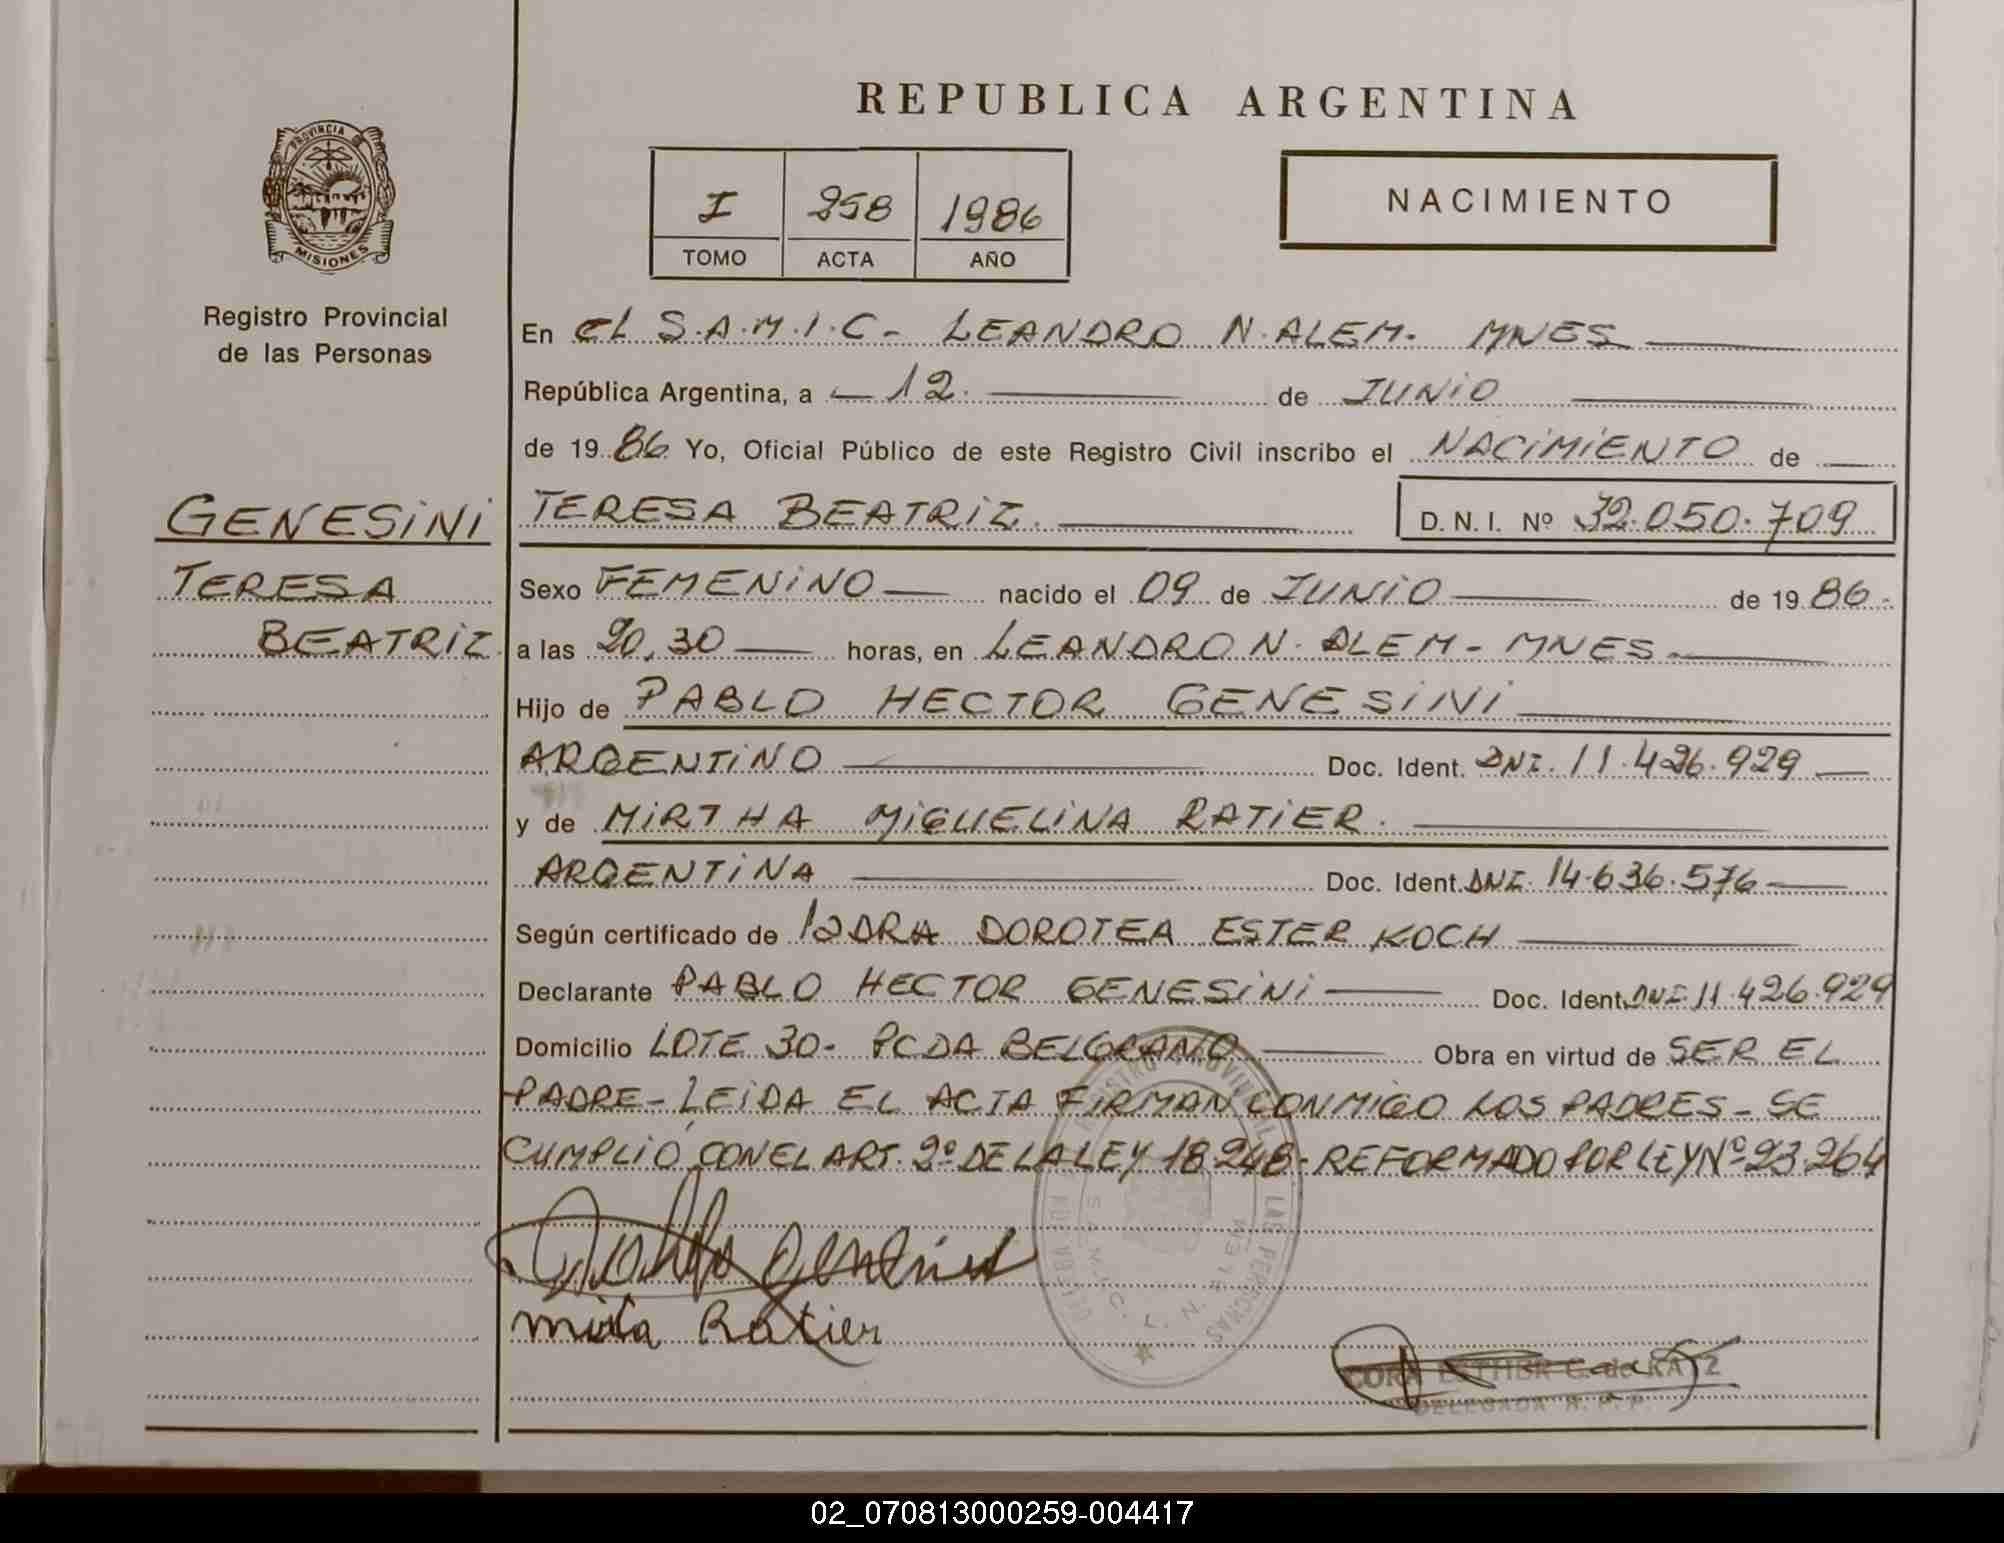 REPUBLICA ARGENTINA
PROVINCIA
MISIONES
Registro Provincial
de las Personas
I 258 1986
TOMO ACTA AÑO
NACIMIENTO
En el S.A.M.I.C- LEANDRO N. ALEM. MNES
República Argentina, a 12. de JUNIO
de 1986 Yo, Oficial Público de este Registro Civil inscribo el NACIMIENTO de
GENESINI
TERESA
BEATRIZ
TERESA BEATRIZ. D. N. I. Nº 32.050.709
Sexo FEMENINO nacido el 09 de JUNIO de 1986.
a las 20.30 horas, en LEANDRO N. ALEM - MNES.
Hijo de PABLO HECTOR GENESINI
ARGENTINO Doc. Ident. DNI. 11.426.929
y de MIRTHA MIGUELINA RATIER.
ARGENTINA Doc. Ident. DNI. 14.636.576
Según certificado de DOROTEA ESTER KOCH
Declarante PABLO HECTOR GENESINI Doc. Ident. DNI. 11.426.929
Domicilio LOTE 30- PCDA BELGRANO Obra en virtud de SER EL
PADRE - LEIDA EL ACTA FIRMAN CONMIGO LOS PADRES - SE
CUMPLIÓ CON EL ART. 2º DE LA LEY 18.248 - REFORMADO POR LEY Nº 23.264
Ratier
CORA ESTHER C. de KATZ
DELEGADA R. P. P.
02_070813000259-004417